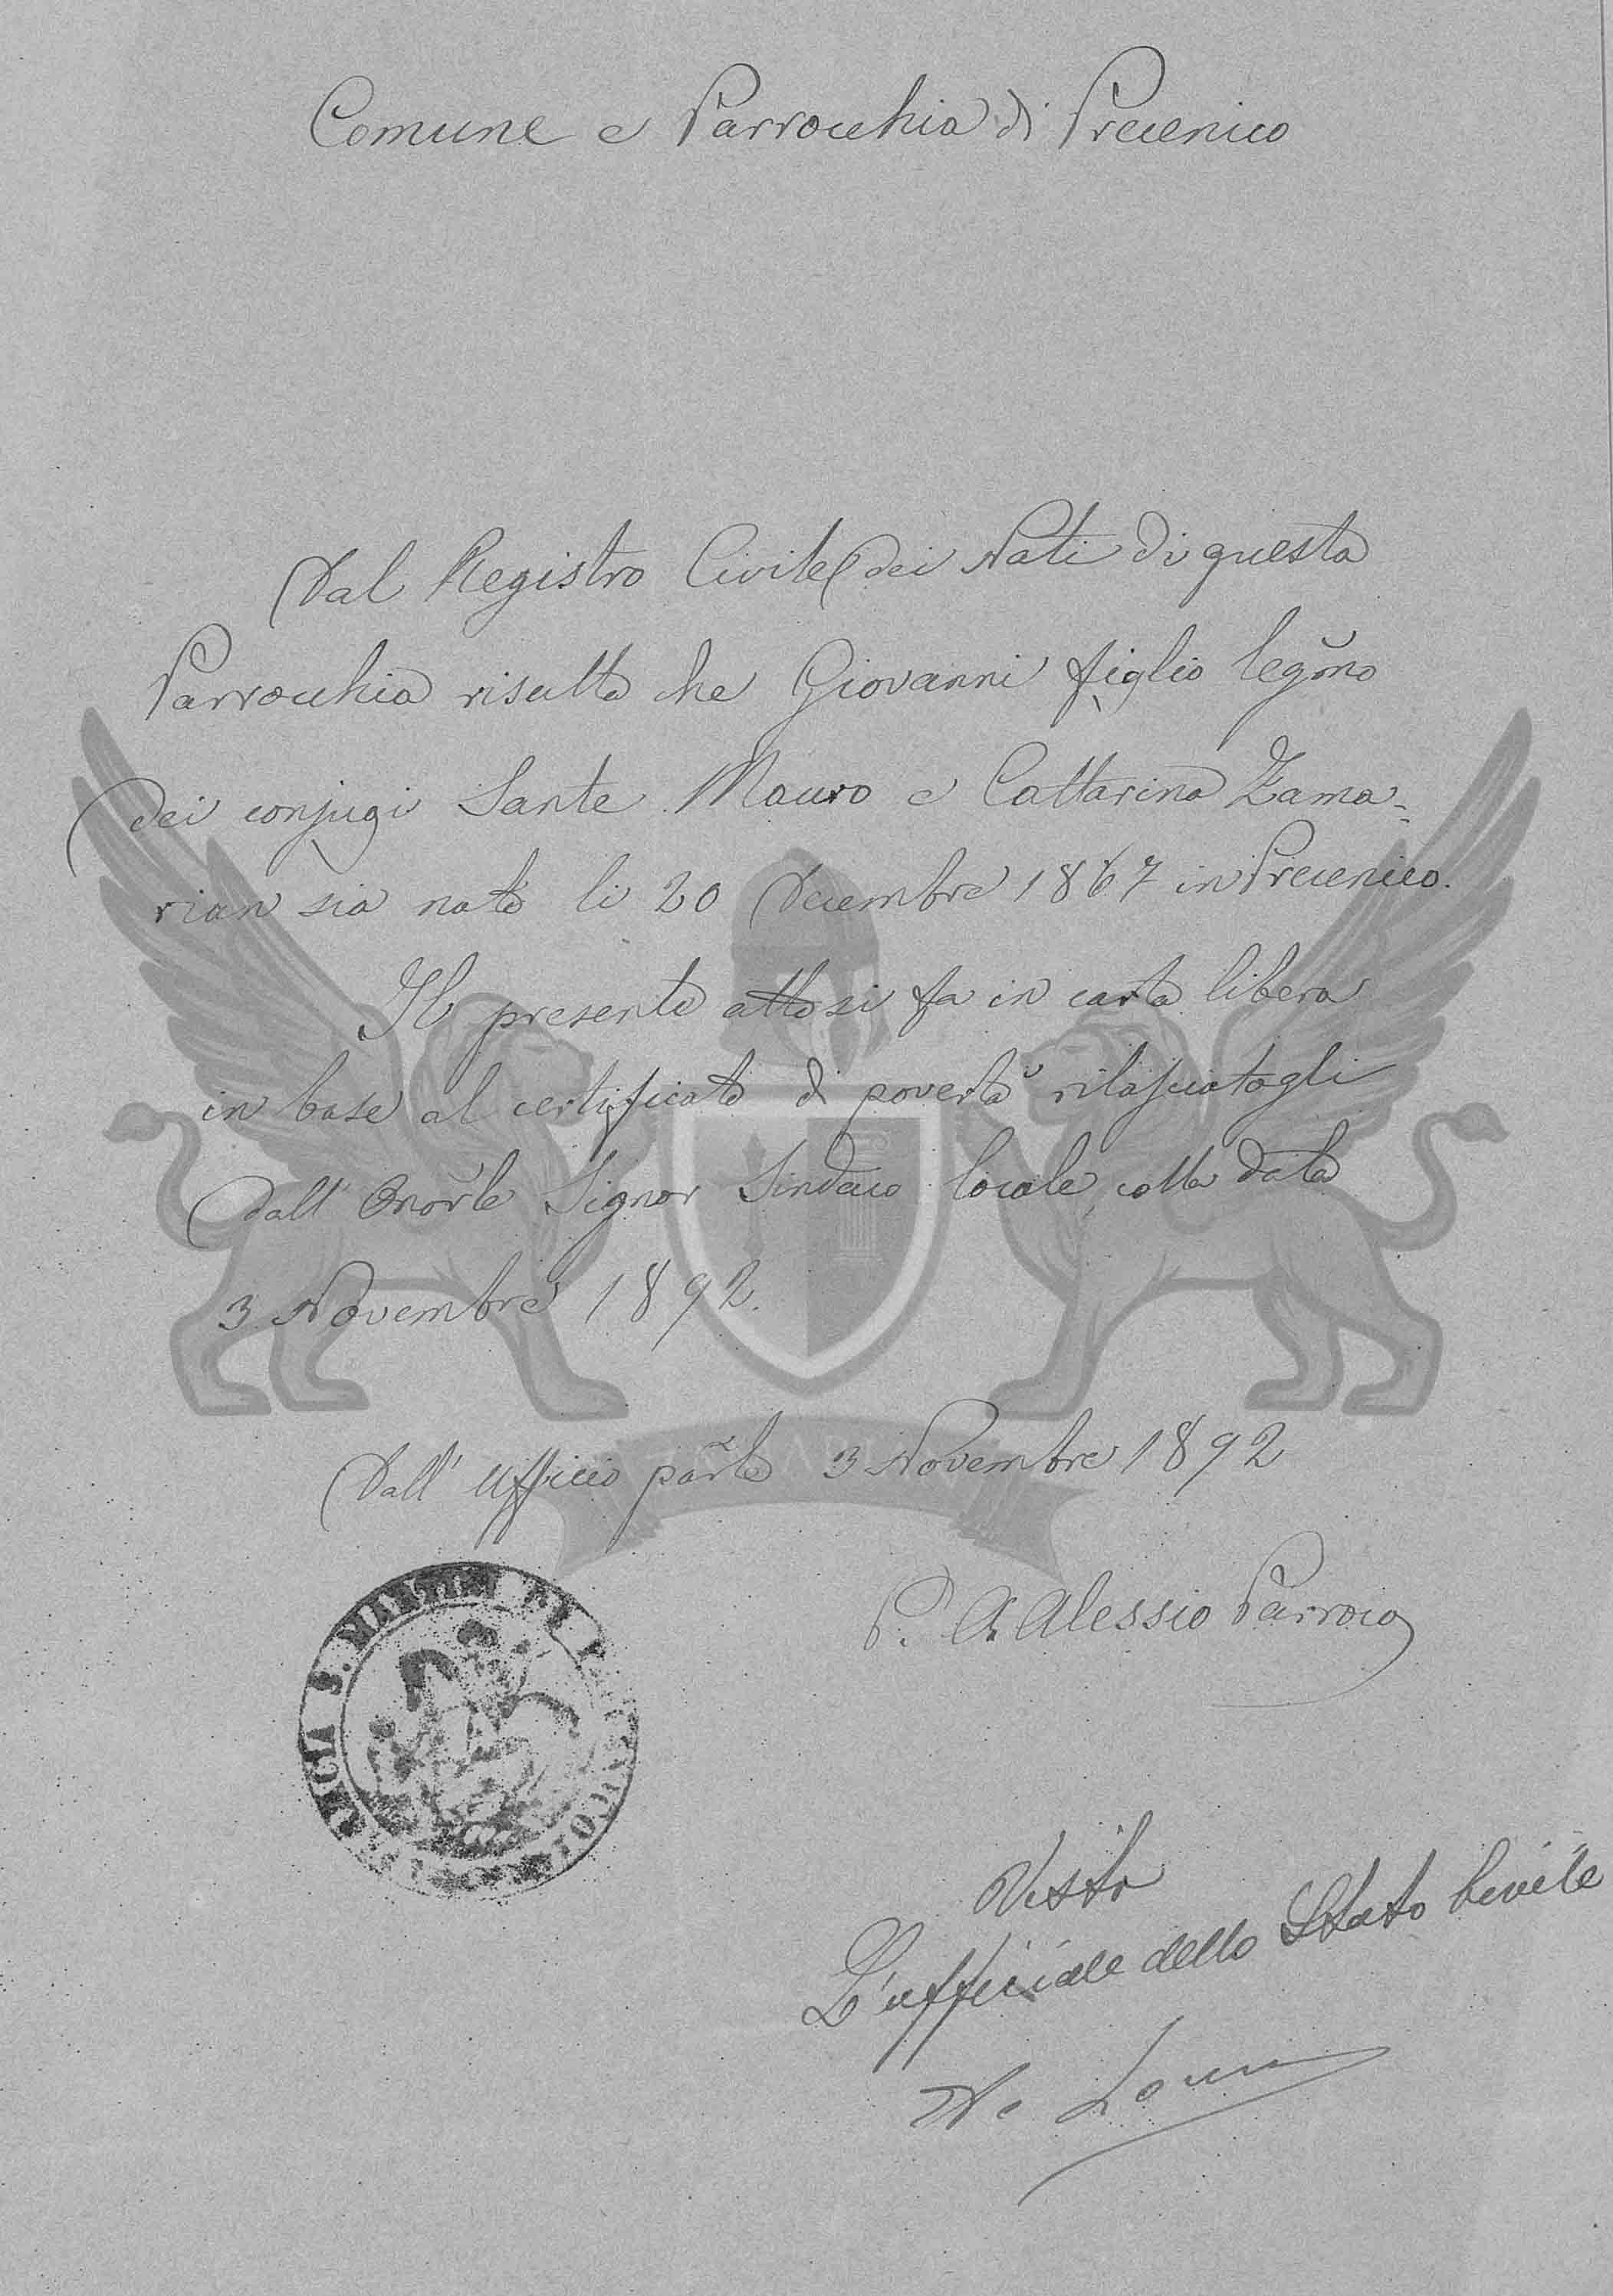 Comune e Parrocchia di Precenico
Dal Registro Civile dei Nati di questa
Parrocchia risulta che Giovanni figlio legm̃o
dei conjugi Sante Mauro e Cattarina Zama-
rian sia nato li 20 Decembre 1867 in Precenico.
Il presente atto si fa in carta libera
in base al certificato di povertà rilasciatogli
dall' Onor̃le Signor Sindaco locale, colla data
3 Novembre 1892.
Dall' Ufficio par̃le 3 Novembre 1892
P. A. Alessio Parroco
S. MARTINO
Visto
L'ufficiale dello Stato Civile